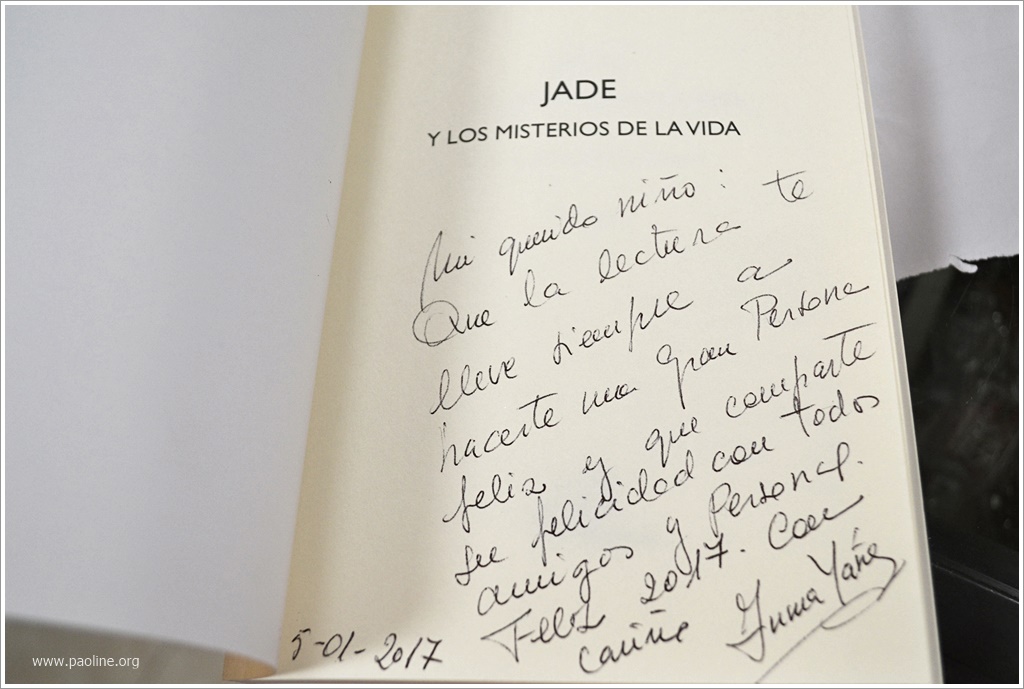 JADE
Y LOS MISTERIOS DE LA VIDA
Mi querido niño:
Que la lectura te
lleve siempre a
hacerte una gran Persona
feliz y que comparte
su felicidad con todos
amigos y Personal.
Feliz 2017. Con
cariño Inma Yañez
5-01-2017
www.paoline.org